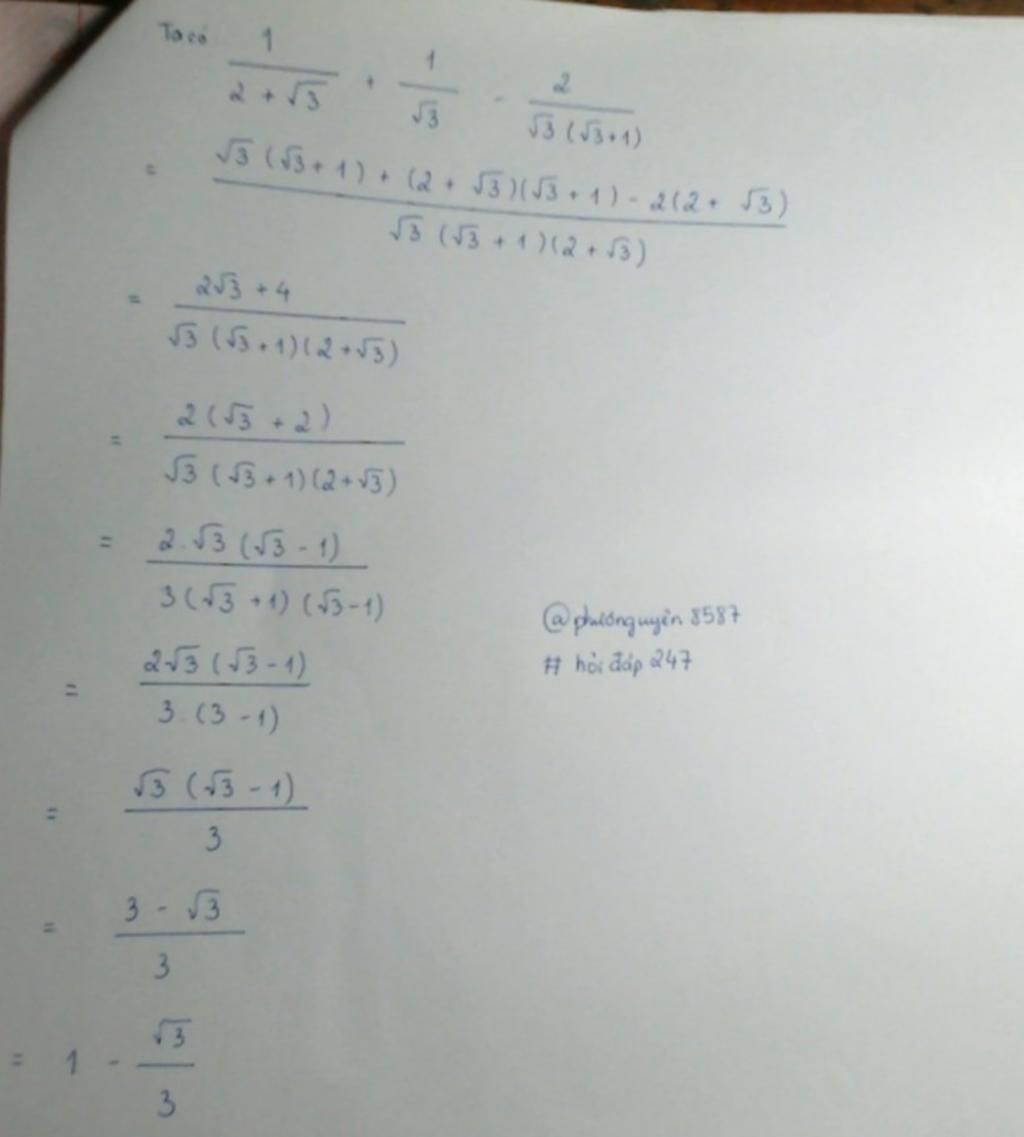 Ta có 1/(2 + √3) + 1/√3 - 2/(√3(√3+1))
= (√3(√3+1) + (2 + √3)(√3+1) - 2(2 + √3))/(√3(√3+1)(2+√3))
= (2√3 + 4)/(√3(√3+1)(2+√3))
= 2(√3 + 2)/(√3(√3+1)(2+√3))
= 2.√3(√3 - 1)/(3(√3+1)(√3-1))
@phuonguyen8587
= 2√3(√3-1)/(3.(3-1))
# hỏi đáp 247
= √3(√3-1)/3
= (3 - √3)/3
= 1 - √3/3